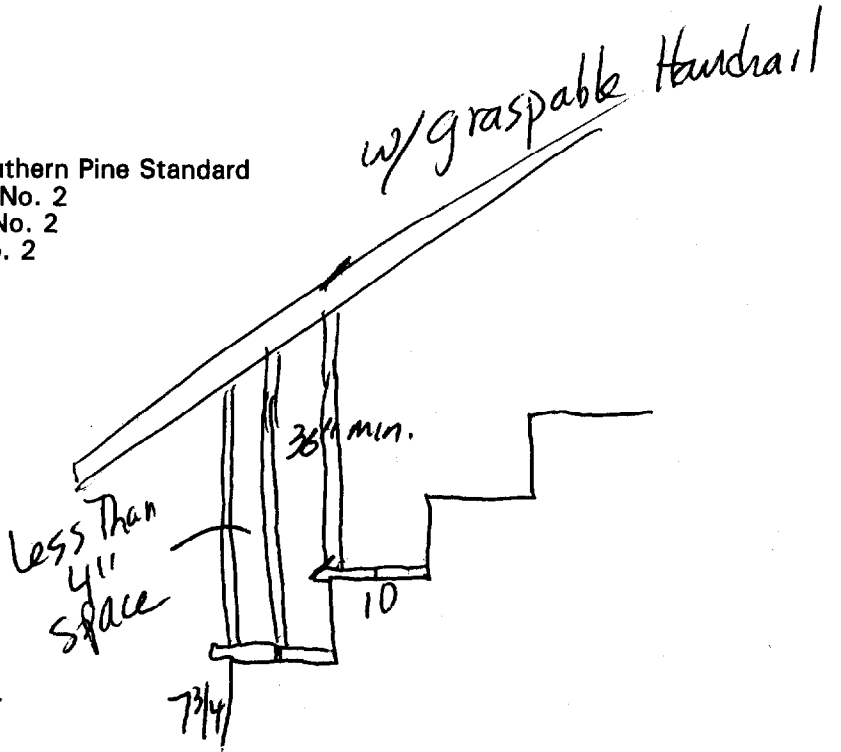 w/ graspable Handrail
uthern Pine Standard
No. 2
No. 2
. 2
36" min.
Less Than
4"
space
10
7 3/4